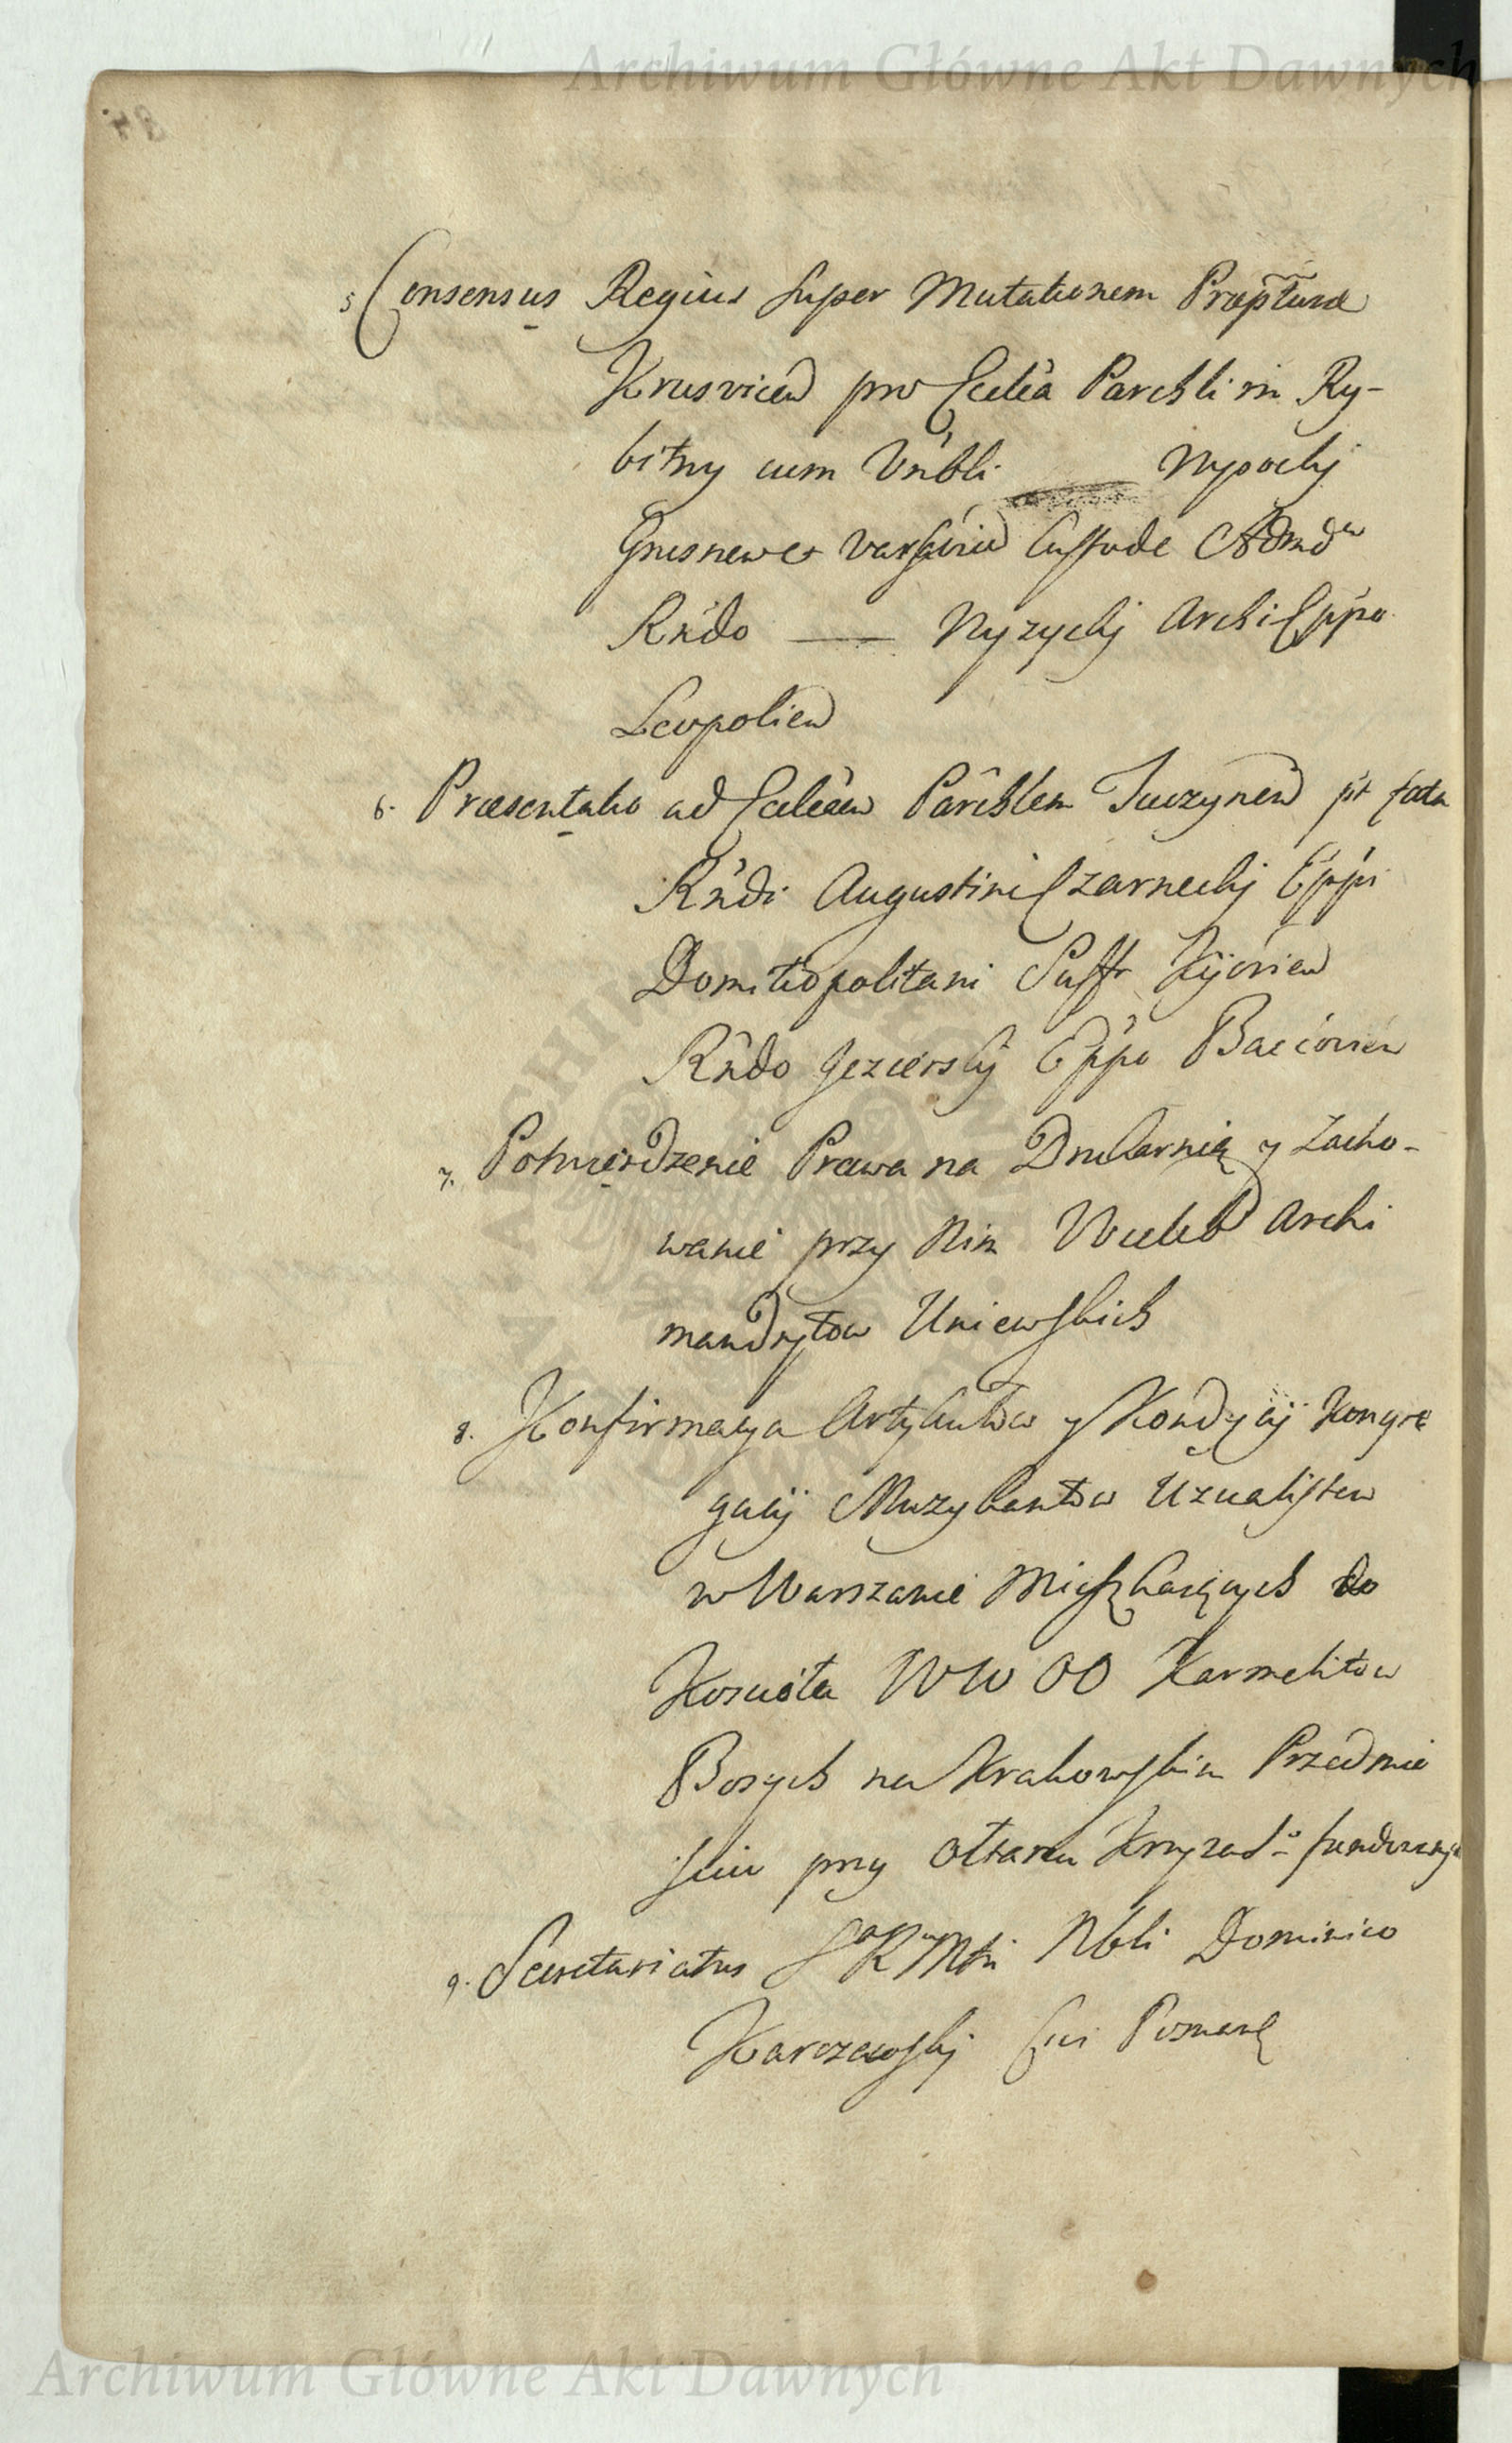 Archiwum Główne Akt Dawnych
5 Consensus Regius super Mutationem Præpturæ
Krusvicen pro Ecclia Parchli in Ry-
bitny cum Vnbli — Wysocky
Gnesnen et Varsavien Custode Admdm
Rndo — Wyzycky Archi Eppo
Leopolien
6. Præsentatio ad Eccleam Parchlem Tuczynen pt fata
Rndi Augustini Czarnecky Eppi
Domitiopolitani Suffr Kijovien
Rndo Jeziersky Eppo Bacovien
7. Potwierdzenie Prawa na Drukarnią y Zacho-
wanie przy nim Wieleb Archi
mandrytow Uniewskich
8. Konfirmacya Artykułow y Kondycij Kongre
gacij Muzykantow Uzualistow
w Warszawie Mieszkaiących do
Kościoła WW OO Karmelitow
Bosych na Krakowskim Przedmie
ściu przy Ołtarzu
9. Secretariatus S R Mtis Nbli Dominico
Karczewsky
Archiwum Główne Akt Dawnych